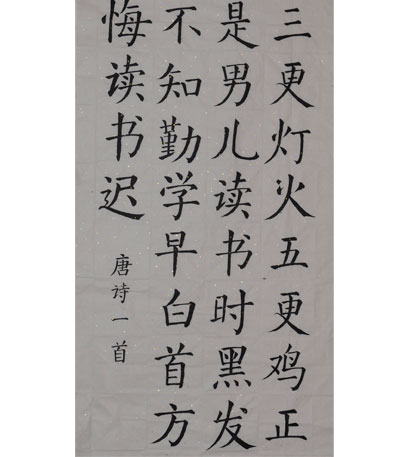 三更灯火五更鸡正
是男儿读书时黑发
不知勤学早白首方
悔读书迟
唐诗一首